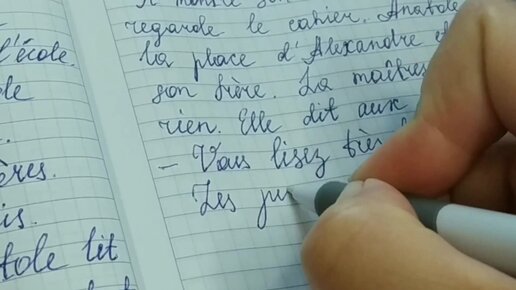 l'école.
ole
ères.
is.
tole lit
Il montre son
regarde le cahier. Anatole
la place d'Alexandre et
son frère. La maîtres
rien. Elle dit aux
– Vous lisez très
Les ju